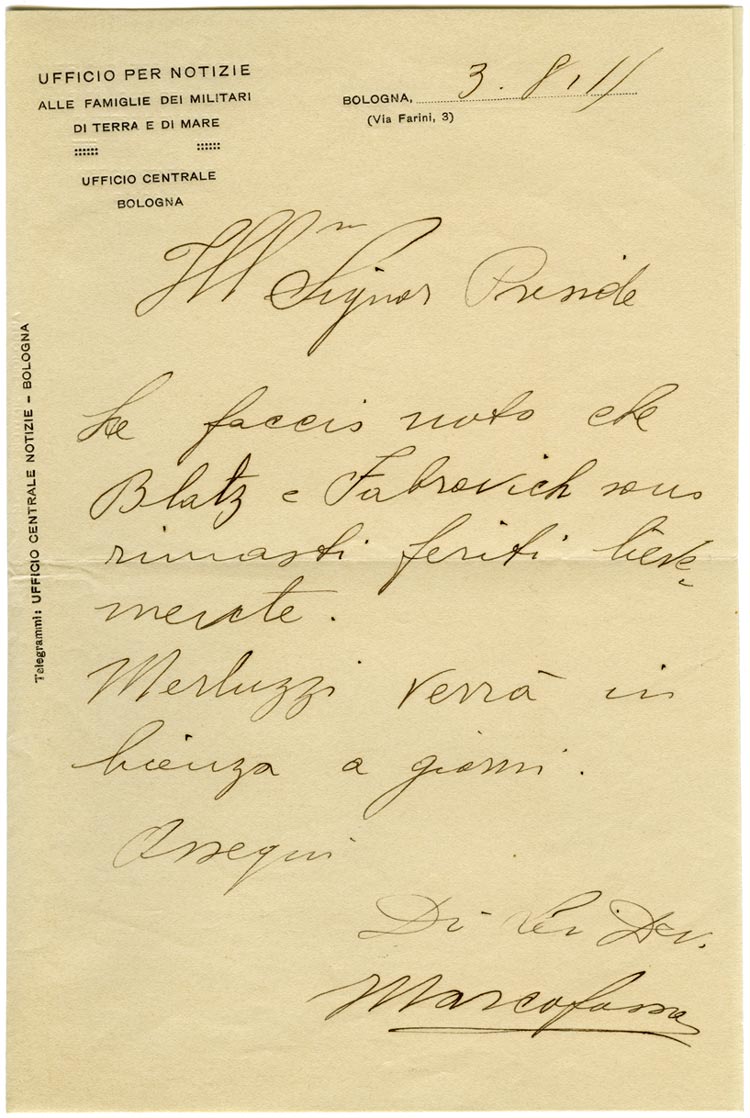 UFFICIO PER NOTIZIE
ALLE FAMIGLIE DEI MILITARI
DI TERRA E DI MARE
UFFICIO CENTRALE
BOLOGNA
BOLOGNA, 3. 8.
(Via Farini, 3)
Telegrammi: UFFICIO CENTRALE NOTIZIE - BOLOGNA
Ill mo Signor Preside
Le faccio noto che
Blatz e Fabrovich sono
rimasti feriti lieve-
mente.
Merluzzi verrà in
licenza a giorni.
Ossequi
Di Lei Dev.
Marcofossa